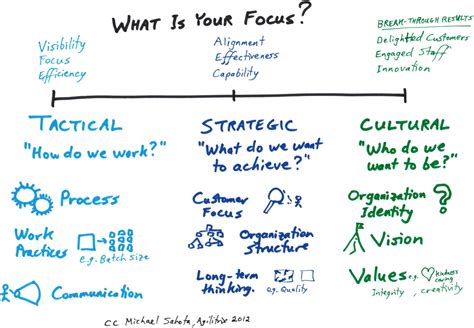 WHAT IS YOUR FOCUS?
Visibility
Focus
Efficiency
Alignment
Effectiveness
Capability
BREAK-THROUGH RESULTS
Delighted Customers
Engaged Staff
Innovation
TACTICAL
"How do we work?"
Process
Work
Practices
e.g. Batch size
Communication
STRATEGIC
"What do we want
to achieve?"
Customer
Focus
Organization
Structure
Long-term
thinking.
e.g. Quality
CULTURAL
"Who do we
want to be?"
Organization
Identity
?
Vision
Values
e.g. kindness
caring
Integrity, creativity
CC Michael Sahota, Agilitrix 2012